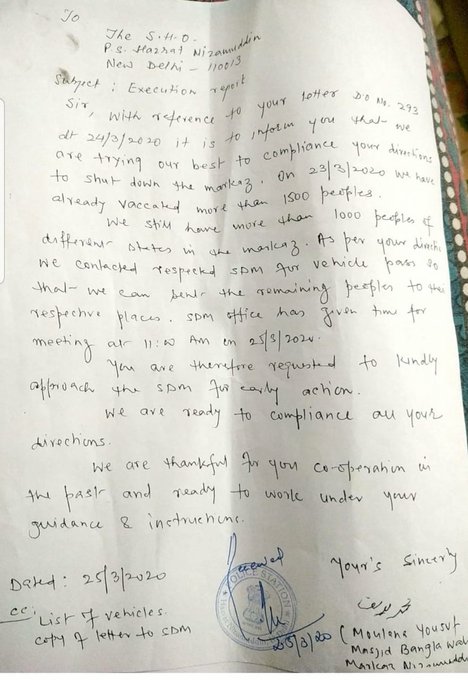 To
The S.H.O.
P.S. Hazrat Nizamuddin
New Delhi - 110013
Subject : Execution report
Sir,
With reference to your letter DO No. 293
dt 24/3/2020 it is to inform you that we
are trying our best to compliance your directions
to shut down the markaz. On 23/3/2020 we have
already vaccated more than 1500 peoples.
We still have more than 1000 peoples of
different states in the markaz. As per your directi
we contacted respected SDM for vehicle pass so
that we can sent the remaining peoples to their
respective places. SDM office has given time for
meeting at 11:00 AM on 25/3/2020.
You are therefore requested to kindly
approach the SDM for early action.
We are ready to compliance all your
directions.
We are thankful for you co-operation in
the past and ready to work under your
guidance & instructions.
Received
Your's Sincerly
Dated : 25/3/2020
POLICE STATION
25/3/20
محمد يوسف
cc: List of vehicles.
copy of letter to SDM
(Moulana Yousuf
Masjid Bangla wali
Markaz Nizamuddi